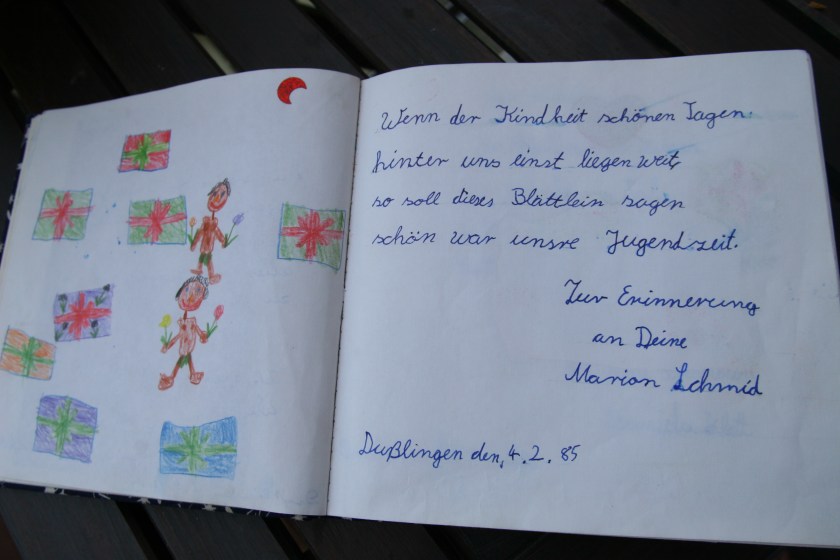 Wenn der Kindheit schönen Tagen
hinter uns einst liegen weit,
so soll dieses Blättlein sagen
schön war unsre Jugendzeit.
Zur Erinnerung
an Deine
Marion Schmid
Dußlingen den, 4.2.85